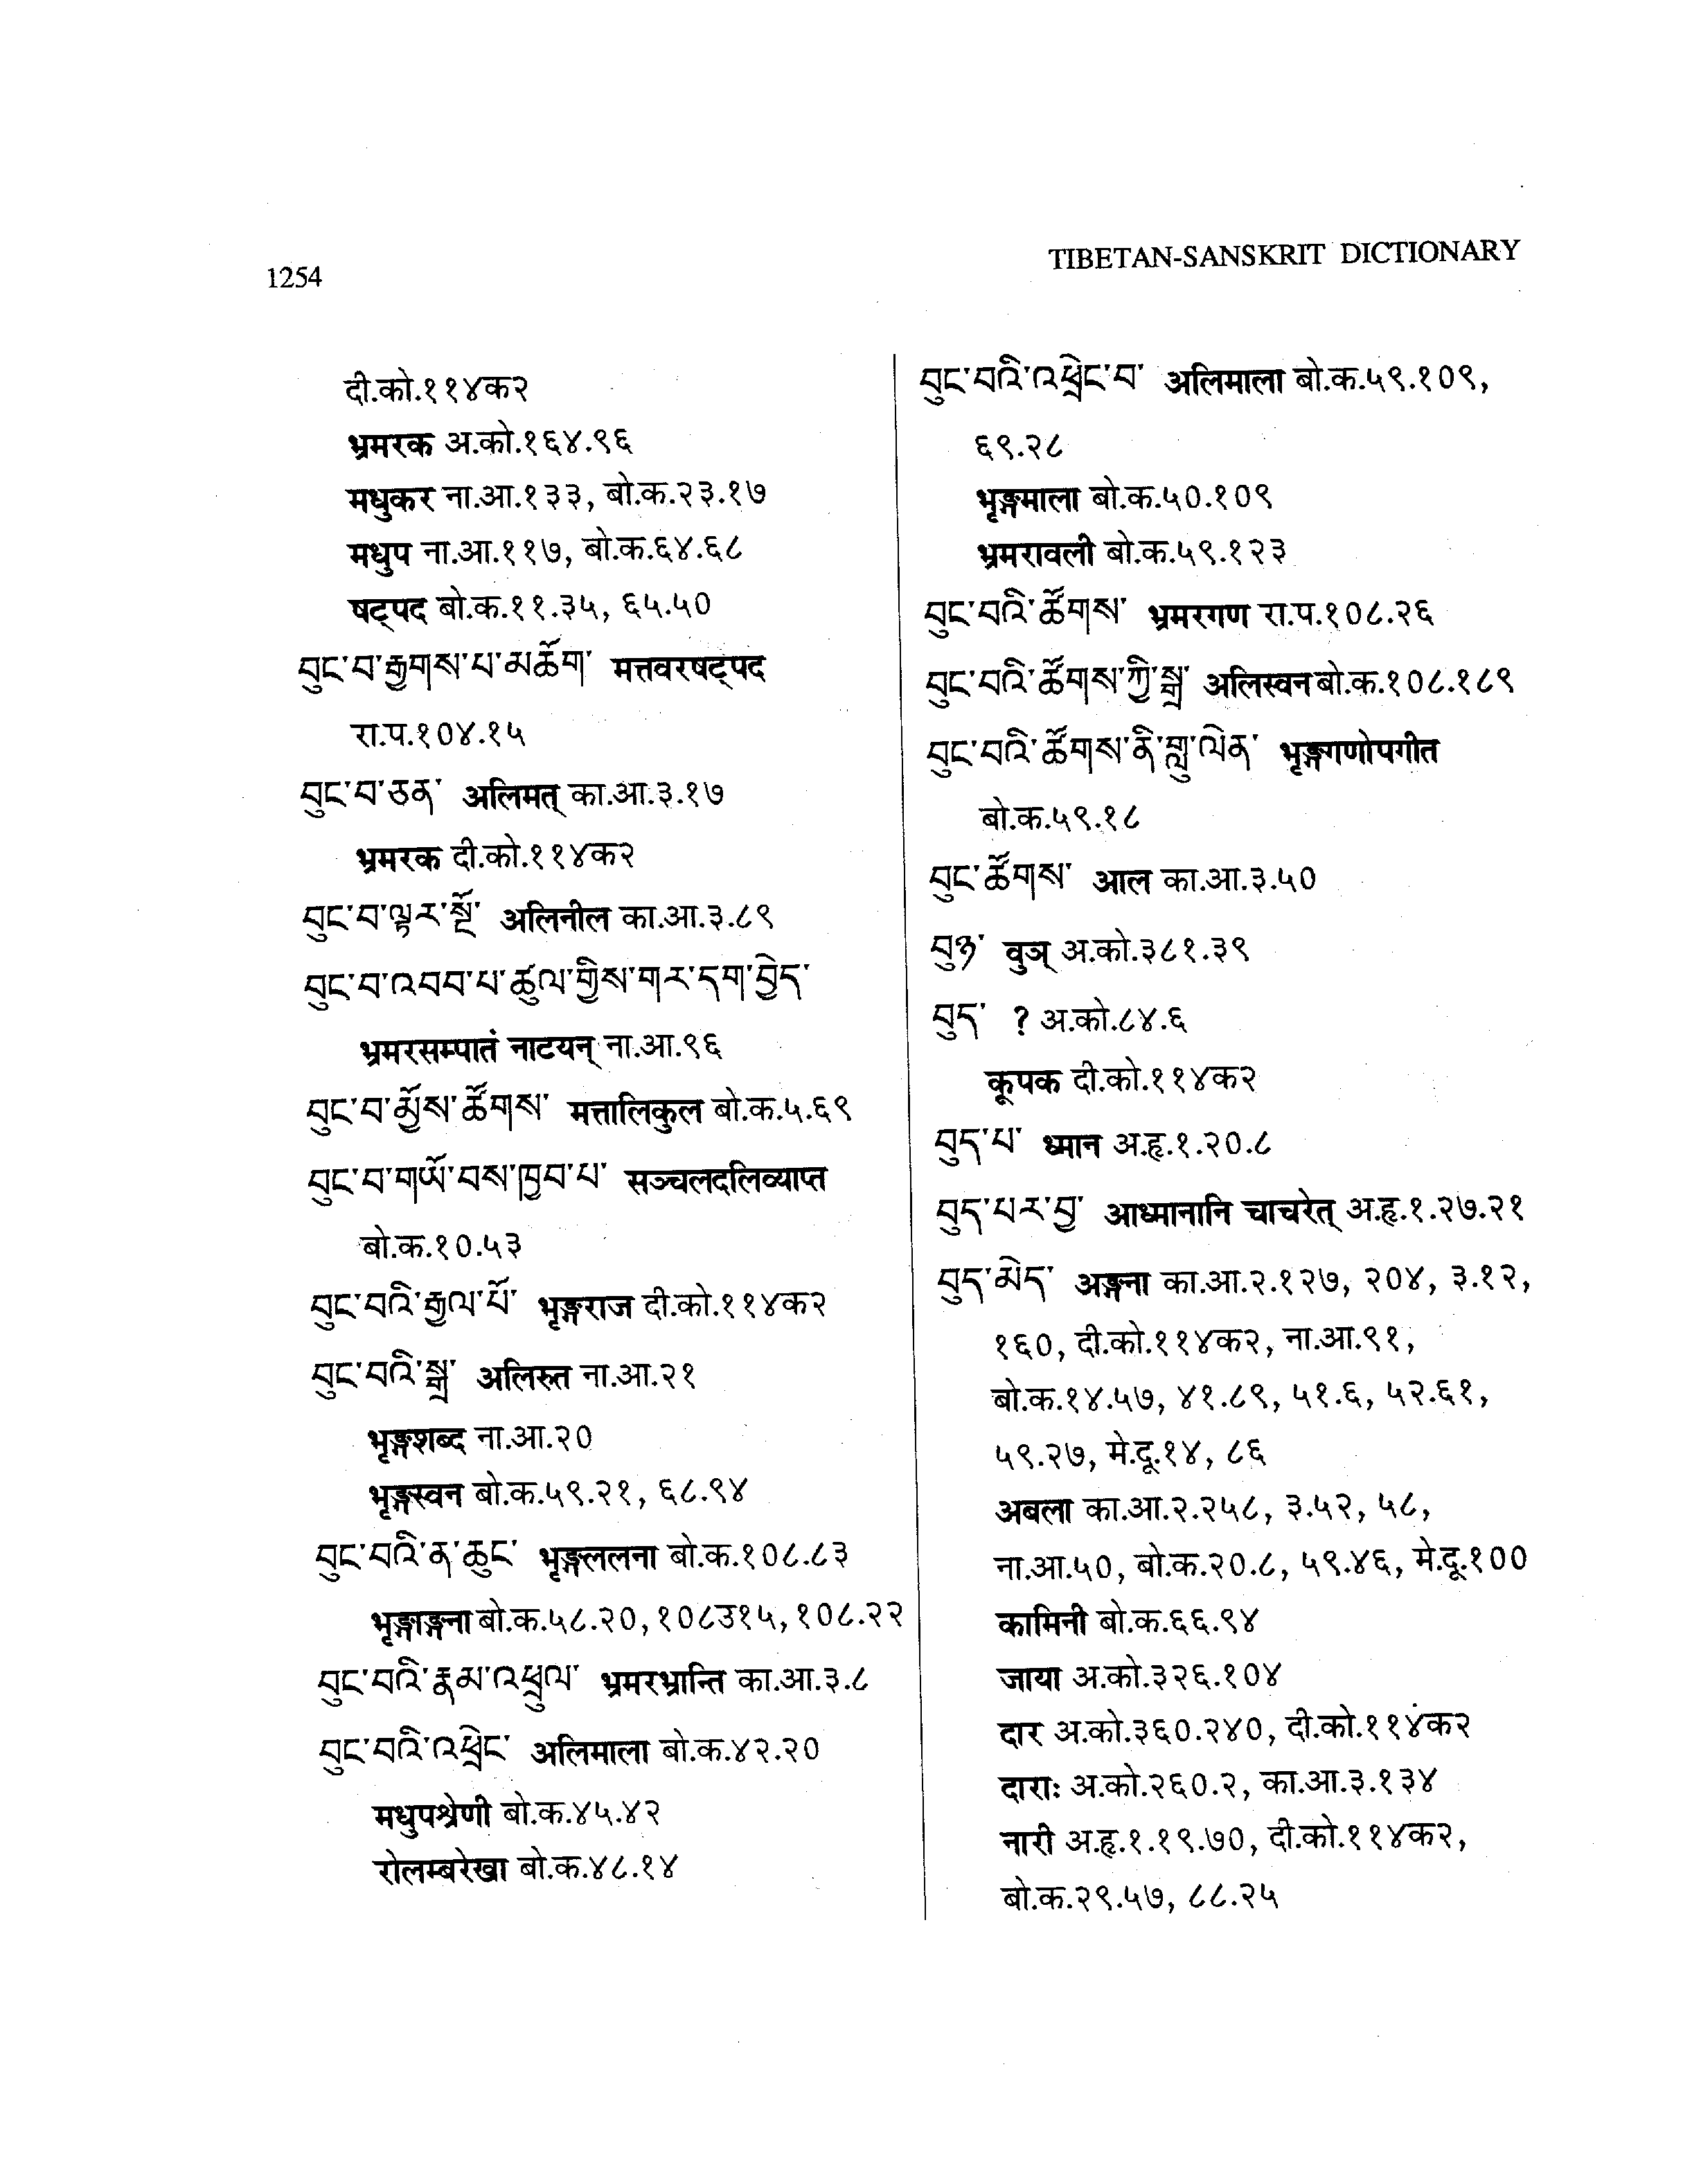 1254
TIBETAN-SANSKRIT DICTIONARY
दी.को.११४क२
भ्रमरक अ.को.१६४.९६
मधुकर ना.आ.१३३, बो.क.२३.१७
मधुप ना.आ.११७, बो.क.६४.६८
षट्पद बो.क.११.३५, ६५.५०
བུང་བ་རྒྱགས་པ་མཆོག་ मत्तवरषट्पद
रा.प.१०४.१५
བུང་བ་ཅན་ अलिमत् का.आ.३.१७
भ्रमरक दी.को.११४क२
བུང་བ་ལྟར་སྔོ་ अलिनील का.आ.३.८९
བུང་བ་འབབ་པ་ཚུལ་གྱིས་གར་དག་བྱེད་
भ्रमरसम्पातं नाटयन् ना.आ.९६
བུང་བ་མྱོས་ཚོགས་ मत्तालिकुल बो.क.५.६९
བུང་བ་གཡོ་བས་ཁྱབ་པ་ सञ्चलदलिव्याप्त
बो.क.१०.५३
བུང་བའི་རྒྱལ་པོ་ भृङ्गराज दी.को.११४क२
བུང་བའི་སྒྲ་ अलिरुत ना.आ.२१
भृङ्गशब्द ना.आ.२०
भृङ्गस्वन बो.क.५९.२१, ६८.९४
བུང་བའི་ན་ཆུང་ भृङ्गललना बो.क.१०८.८३
भृङ्गाङ्गना बो.क.५८.२०, १०८उ१५, १०८.२२
བུང་བའི་རྣམ་འཕྲུལ་ भ्रमरभ्रान्ति का.आ.३.८
བུང་བའི་འཕྲེང་ अलिमाला बो.क.४२.२०
मधुपश्रेणी बो.क.४५.४२
रोलम्बरेखा बो.क.४८.१४
བུང་བའི་འཕྲེང་བ་ अलिमाला बो.क.५९.१०९,
६९.२८
भृङ्गमाला बो.क.५०.१०९
भ्रमरावली बो.क.५९.१२३
བུང་བའི་ཚོགས་ भ्रमरगण रा.प.१०८.२६
བུང་བའི་ཚོགས་ཀྱི་སྒྲ་ अलिस्वन बो.क.१०८.१८९
བུང་བའི་ཚོགས་ནི་གླུ་ལེན་ भृङ्गगणोपगीत
बो.क.५९.१८
བུང་ཚོགས་ आल का.आ.३.५०
བུཉ་ वुञ् अ.को.३८१.३९
བུད་ ? अ.को.८४.६
कूपक दी.को.११४क२
བུད་པ་ ध्मान अ.हृ.१.२०.८
བུད་པར་བྱ་ आध्मानानि चाचरेत् अ.हृ.१.२७.२१
བུད་མེད་ अङ्गना का.आ.२.१२७, २०४, ३.१२,
१६०, दी.को.११४क२, ना.आ.९१,
बो.क.१४.५७, ४१.८९, ५१.६, ५२.६१,
५९.२७, मे.दू.१४, ८६
अबला का.आ.२.२५८, ३.५२, ५८,
ना.आ.५०, बो.क.२०.८, ५९.४६, मे.दू.१००
कामिनी बो.क.६६.९४
जाया अ.को.३२६.१०४
दार अ.को.३६०.२४०, दी.को.११४क२
दाराः अ.को.२६०.२, का.आ.३.१३४
नारी अ.हृ.१.१९.७०, दी.को.११४क२,
बो.क.२९.५७, ८८.२५